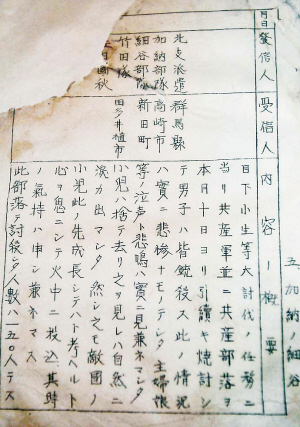 五、加納ノ細谷
月日
發信人
受信人
内容ノ概要
北支派遣
加納部隊
細谷部隊
竹田隊
田國秋
群馬縣
高崎市
新田町
田多井植市
目下小生等大討伐ノ任務ニ
當リ共産軍並ニ共産部落ヲ
本月十日ヨリ引續キ焼討シ
テ男子ハ皆銃殺ス此情况
ハ實ニ悲惨ナモノテシタ主婦娘
等ノ泣声ト悲鳴ハ實ニ見兼ネマシタ
小児ハ捨テ去リ之ヲ見レハ自然ニ
涙カ出マシタ 然シ之モ敵國ノ
小児此ノ先成長シテハト考ヘルト
心ヲ鬼ニシテ火中ニ投込其時
ノ氣持ハ申シ兼ネマス
此部落テ討殺シタ人数ハ一五〇人テス